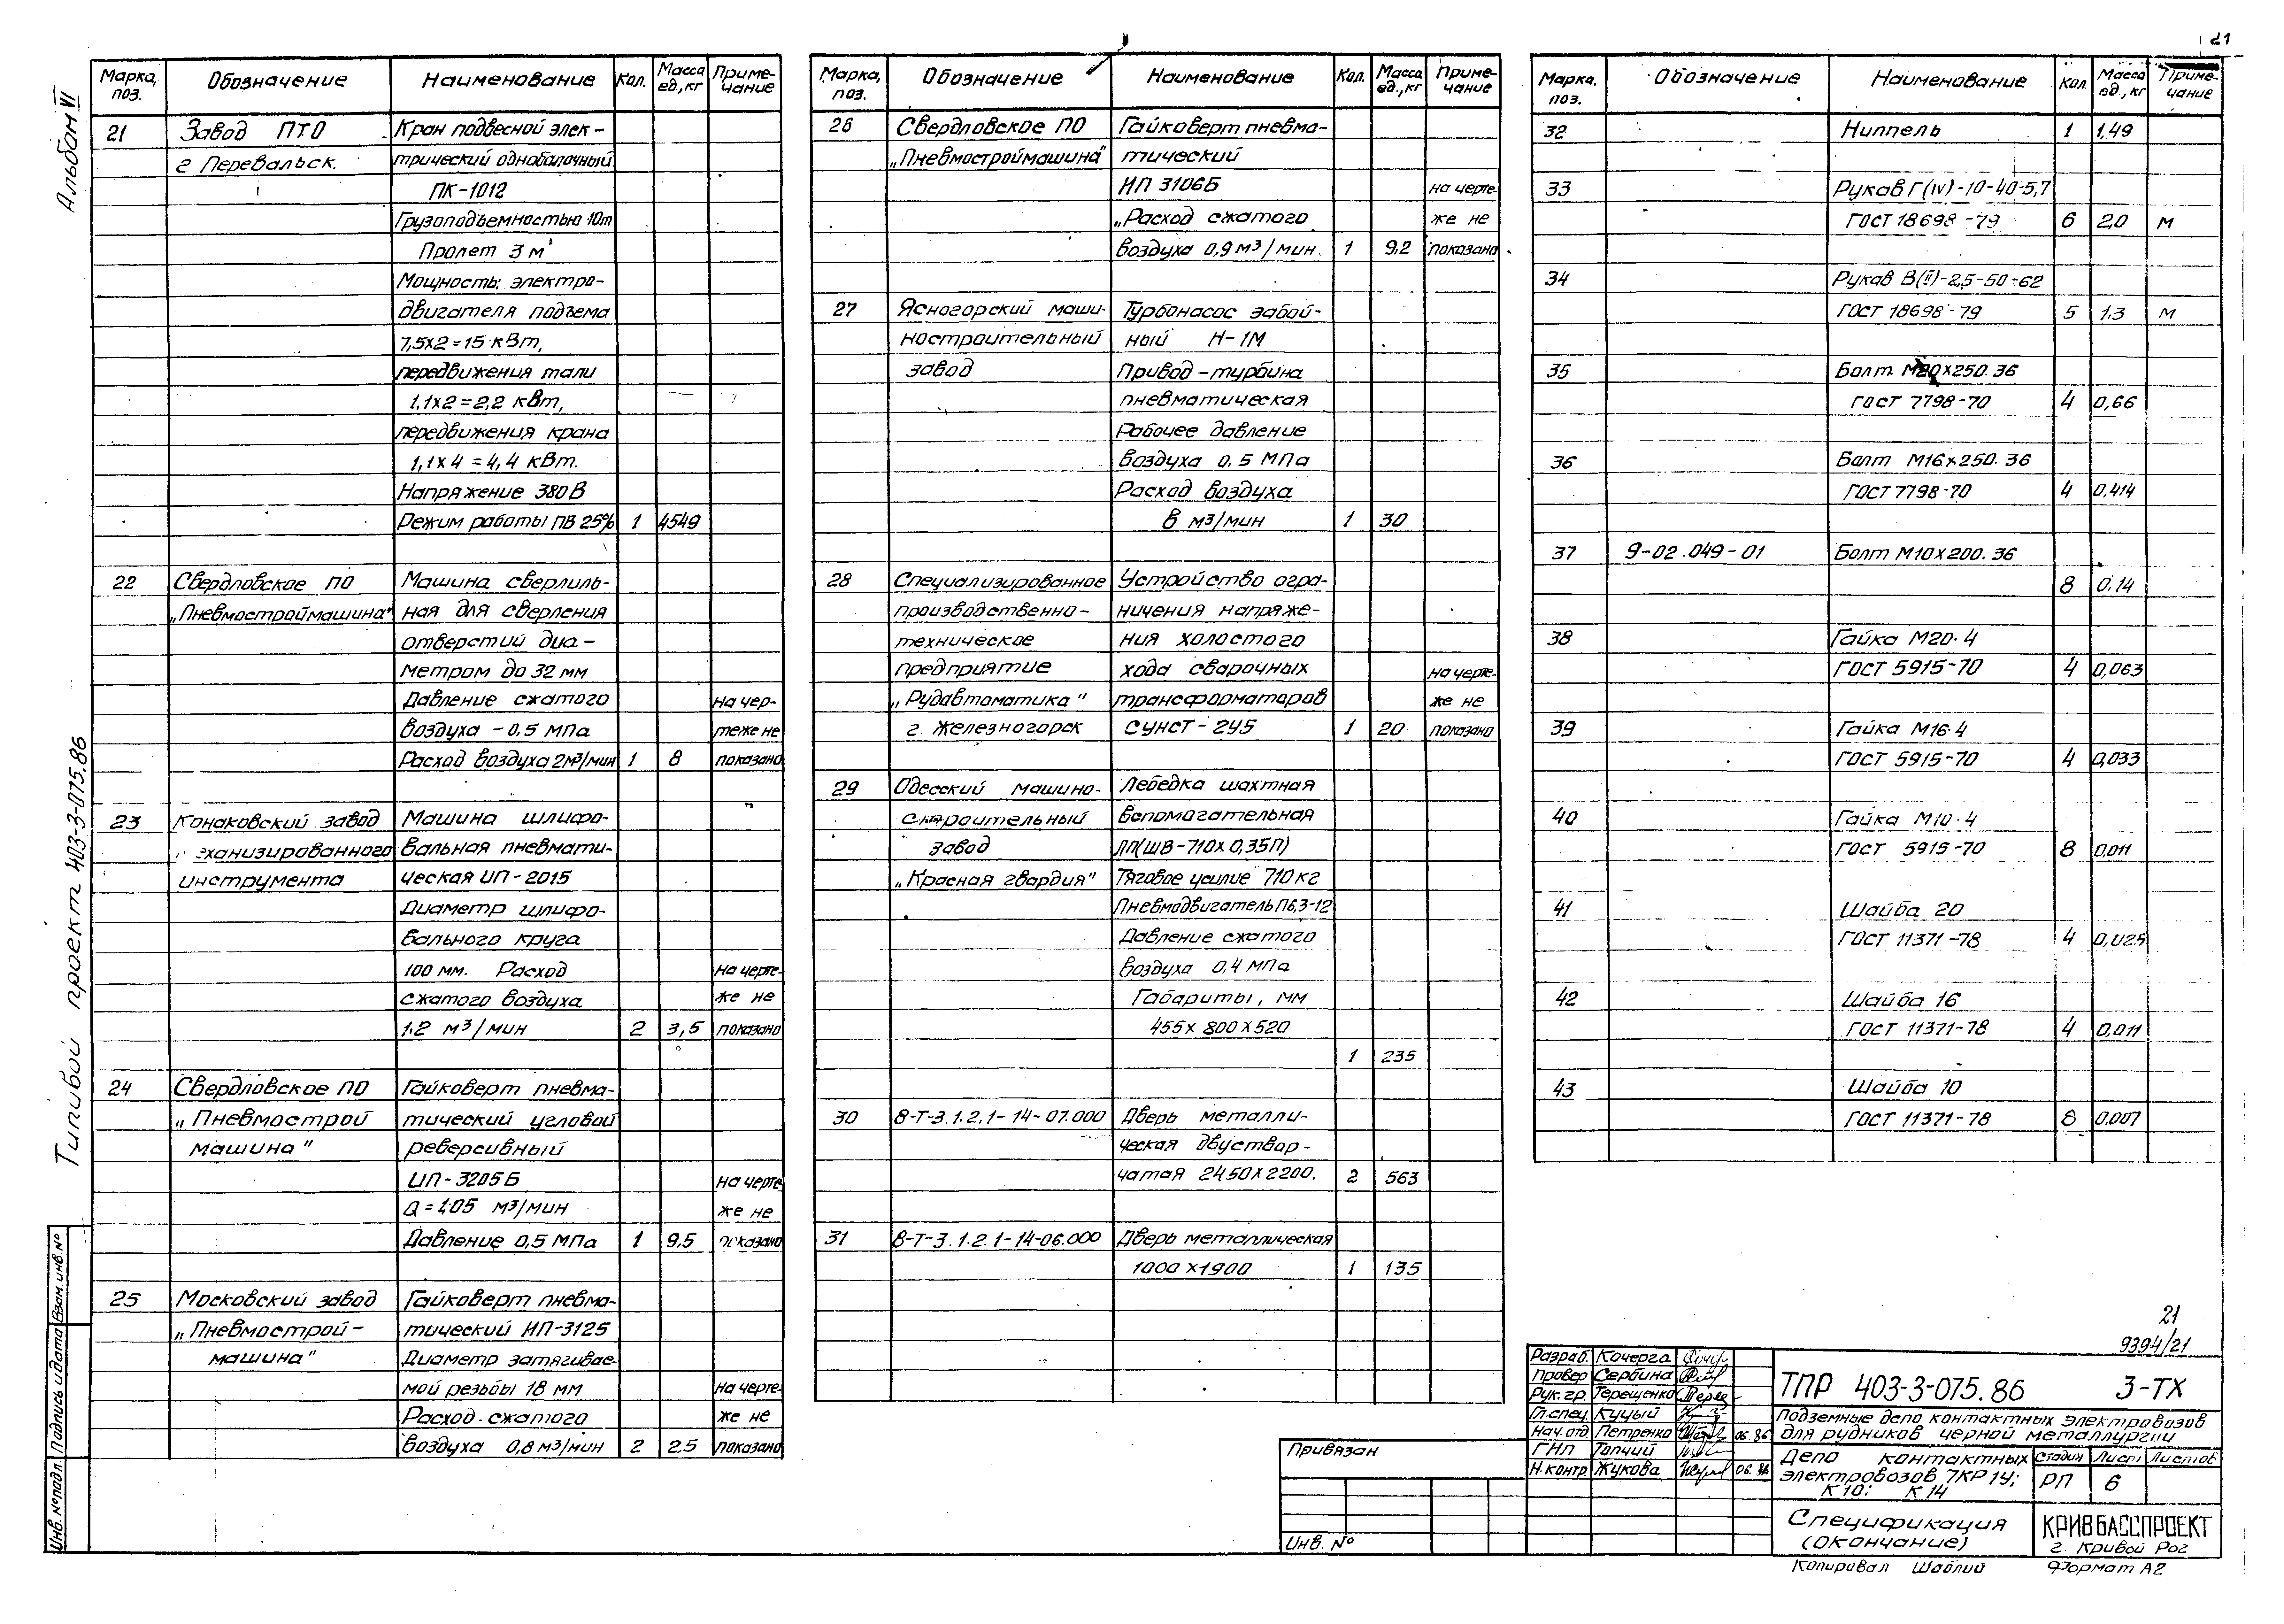 21
Альбом VI
Типовой проект 403-3-075.86
Инв. № подл Подпись и дата Взам. инв. №
Марка, поз. Обозначение Наименование Кол. Масса ед., кг Приме-чание
21 Завод ПТО Кран подвесной элек-
г Перевальск. трический однобалочный
ПК-1012
Грузоподъемностью 10т
Пролет 3 м
Мощность: электро-
двигателя подъема
7,5х2=15 кВт,
передвижения тали
1,1х2=2,2 кВт,
передвижения крана
1,1х4=4,4 кВт.
Напряжение 380В
Режим работы ПВ 25% 1 4549
22 Свердловское ПО Машина сверлиль-
„Пневмостроймашина" ная для сверления
отверстий диа-
метром до 32 мм
Давление сжатого на чер-
воздуха - 0,5 МПа теже не
Расход воздуха 2м³/мин 1 8 показано
23 Конаковский завод Машина шлифо-
еханизированного вальная пневмати-
инструмента ческая ИП-2015
Диаметр шлифо-
вального круга
100 мм. Расход на черте-
сжатого воздуха же не
1.2 м³/мин 2 3,5 показано
24 Свердловское ПО Гайковерт пневма-
„Пневмострой тический угловой
машина" реверсивный
ИП-3205Б на черте
Q = 1,05 м³/мин же не
Давление 0,5 МПа 1 9.5 показано
25 Московский завод Гайковерт пневма-
„Пневмострой- тический ИП-3125
машина" Диаметр затягивае-
мой резьбы 18 мм на черте-
Расход сжатого же не
воздуха 0,8 м³/мин 2 2.5 показано
Марка, поз. Обозначение Наименование Кол. Масса ед., кг Приме-чание
26 Свердловское ПО Гайковерт пневма-
„Пневмостроймашина" тический
ИП 3106Б на черте-
„Расход сжатого же не
воздуха 0,9 м³/мин. 1 9,2 показано
27 Ясногорский маши- Турбонасос забой-
ностроительный ный Н-1М
завод Привод-турбина
пневматическая
Рабочее давление
воздуха 0,5 МПа
Расход воздуха
8 м³/мин 1 30
28 Специализированное Устройство огра-
производственно- ничения напряже-
техническое ния холостого
предприятие хода сварочных на черте-
„Рудавтоматика" трансформаторов же не
г. Железногорск СУНСТ-2У5 1 20 показано
29 Одесский машино- Лебедка шахтная
строительный вспомогательная
завод ЛП(ШВ-710х0,35П)
„Красная гвардия" Тяговое усилие 710кг
Пневмодвигатель П6,3-12
Давление сжатого
воздуха 0,4 МПа
Габариты, мм
455х800х520
1 235
30 8-Т-3.1.2.1-14-07.000 Дверь металли-
ческая двуствор-
чатая 2450х2200. 2 563
31 8-Т-3.1.2.1-14-06.000 Дверь металлическая
1000х1900 1 135
Марка. поз. Обозначение Наименование Кол Масса ед., кг Приме-чание
32 Ниппель 1 1,49
33 Рукав Г(IV)-10-40-5,7
ГОСТ 18698-79 6 2,0 м
34 Рукав В(II)-2,5-50-62
ГОСТ 18698-79 5 1,3 м
35 Болт М20х250.36
ГОСТ 7798-70 4 0,66
36 Болт М16х250.36
ГОСТ 7798-70 4 0,414
37 9-02.049-01 Болт М10х200.36
8 0,14
38 Гайка М20.4
ГОСТ 5915-70 4 0,063
39 Гайка М16.4
ГОСТ 5915-70 4 0,033
40 Гайка М10.4
ГОСТ 5915-70 8 0,011
41 Шайба 20
ГОСТ 11371-78 4 0,025
42 Шайба 16
ГОСТ 11371-78 4 0,011
43 Шайба 10
ГОСТ 11371-78 8 0,007
21
9394/21
Привязан
Инв. №
Разраб. Кочерга
Провер Сербина
Рук. гр. Терещенко
Гл. спец. Куцый
Нач. отд Петренко 06.86
ГИП Топчий
Н. контр. Жукова 06.86
ТПР 403-3-075.86 3-ТХ
Подземные депо контактных электровозов
для рудников черной металлургии
Депо контактных
электровозов 7КР1У;
К10; К14
Стадия Лист Листов
РП 6
Спецификация
(окончание)
КРИВБАССПРОЕКТ
г. Кривой Рог
Копировал Шаблий Формат А2